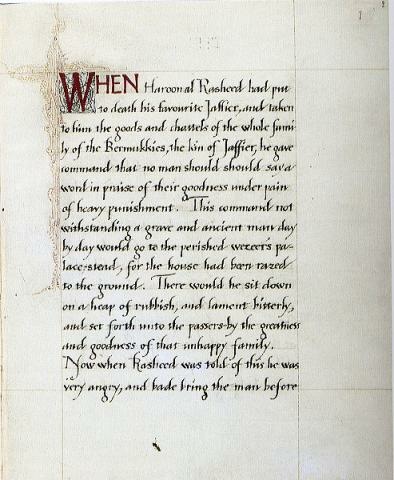 WHEN Haroon al Rasheed had put
to death his favourite Jaffier, and taken
to him the goods and chattels of the whole fami
ly of the Bermukkies, the kin of Jaffier, he gave
command that no man should should say a
word in praise of their goodness under pain
of heavy punishment. This command not
withstanding a grave and ancient man day
by day would go to the perished wezeer's pa-
lace-stead, for the house had been razed
to the ground. There would he sit down
on a heap of rubbish, and lament bitterly,
and set forth unto the passers-by the greatness
and goodness of that unhappy family.
Now when Rasheed was told of this he was
very angry, and bade bring the man before